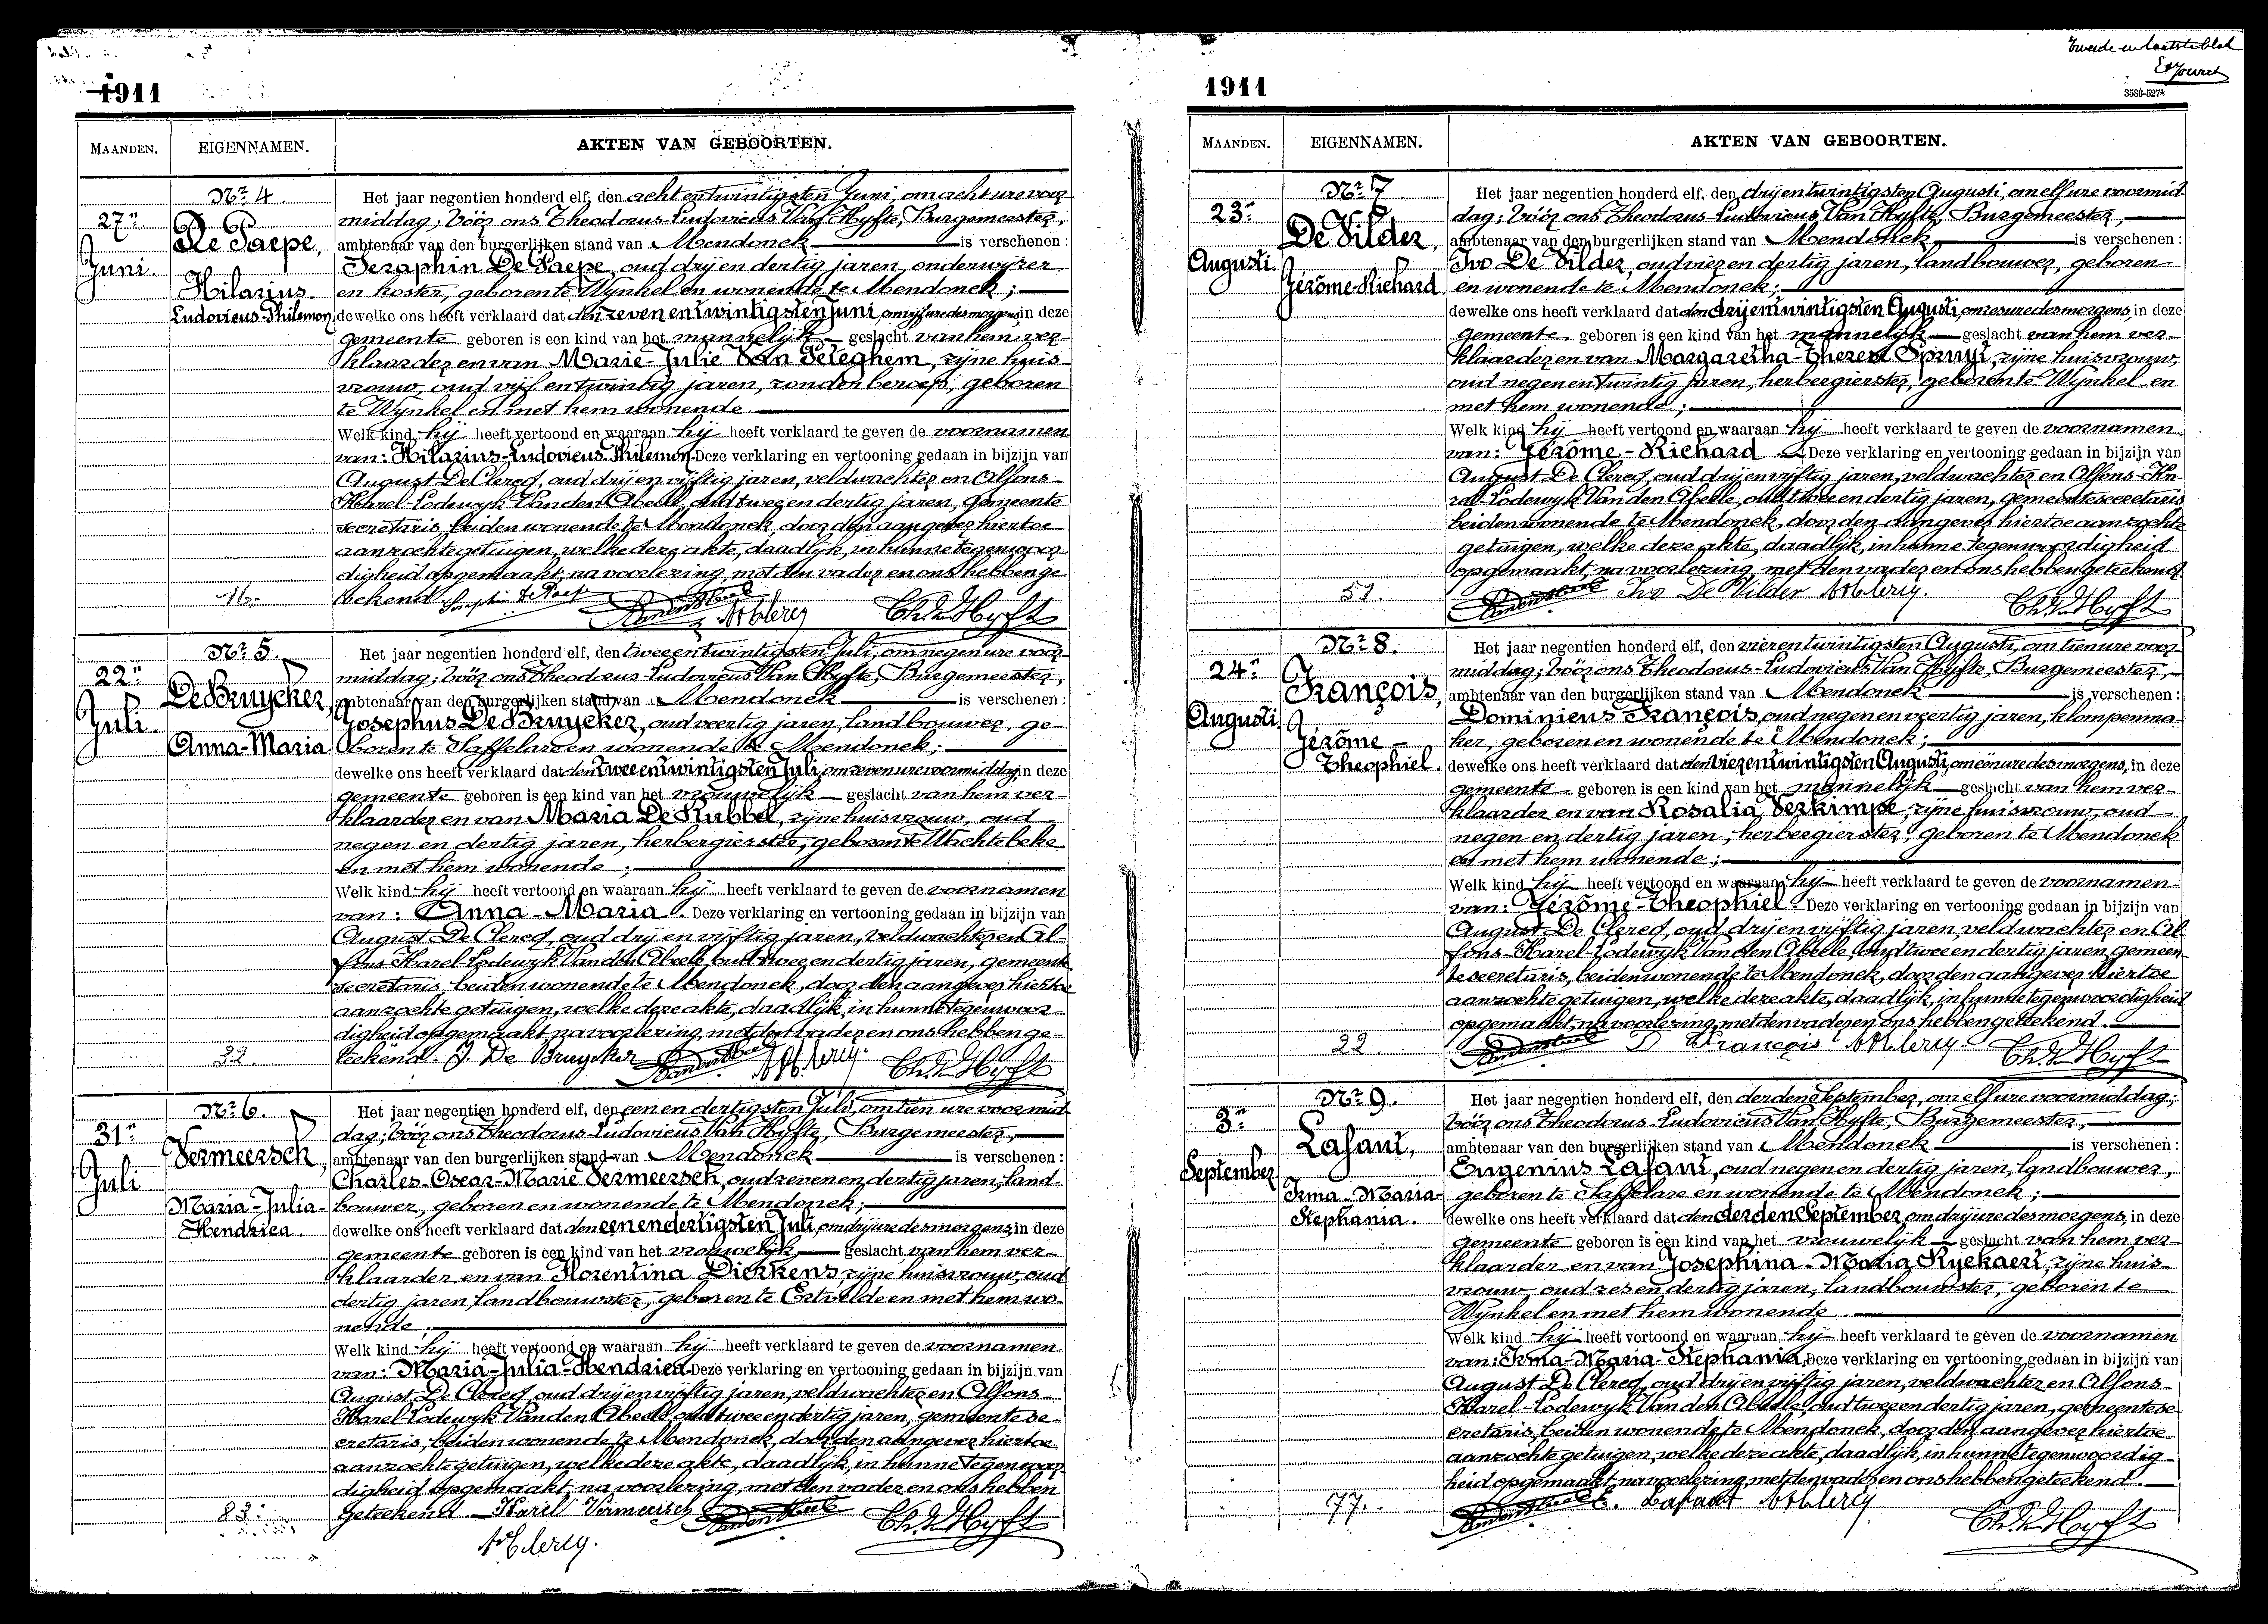 Tweede en laatste blad
1911
MAANDEN. EIGENNAMEN. AKTEN VAN GEBOORTEN.
27n
Juni.
Nr 4.
De Paepe,
Hilarius-
Ludovicus-Philemon
16.
Het jaar negentien honderd elf, den acht en twintigsten Juni, om acht ure voor-
middag; vóór ons Theodorus-Ludovicus Van Hyfte, Burgemeester,
ambtenaar van den burgerlijken stand van Mendonck is verschenen:
Seraphin De Paepe, oud drij en dertig jaren, onderwijzer
en koster, geboren te Wynkel en wonende te Mendonck;
dewelke ons heeft verklaard dat den zeven en twintigsten Juni, om vijf ure des morgens, in deze
gemeente geboren is een kind van het mannelijk geslacht van hem ver-
klaarder en van Marie-Julie Van Peteghem, zijne huis-
vrouw, oud vijf en twintig jaren, zonder beroep, geboren
te Wynkel en met hem wonende.
Welk kind hij heeft vertoond en waaraan hij heeft verklaard te geven de voornamen
van: Hilarius-Ludovicus-Philemon. Deze verklaring en vertooning gedaan in bijzijn van
August De Clercq, oud drij en vijftig jaren, veldwachter en Alfons-
Karel-Lodewyk Van den Abeele, oud twee en dertig jaren, gemeente-
secretaris, beiden wonende te Mendonck, door den aangever hiertoe
aanzochte getuigen, welke deze akte, daadlijk, in hunne tegenwoor-
digheid opgemaakt, na voorlezing, met den vader en ons hebben ge-
teekend. Seraphin De Paepe VandenAbeele A De Clercq Th. V. Hyfte
22n
Juli.
Nr 5.
De Bruycker,
Anna-Maria
32.
Het jaar negentien honderd elf, den twee en twintigsten Juli, om negen ure voor-
middag; vóór ons Theodorus-Ludovicus Van Hyfte, Burgemeester,
ambtenaar van den burgerlijken stand van Mendonck is verschenen:
Josephus De Bruycker, oud veertig jaren, landbouwer, ge-
boren te Saffelare en wonende te Mendonck;
dewelke ons heeft verklaard dat den twee en twintigsten Juli, om zeven ure voormiddag, in deze
gemeente geboren is een kind van het vrouwelijk geslacht van hem ver-
klaarder en van Maria De Kubbel, zijne huisvrouw, oud
negen en dertig jaren, herbergierster, geboren te Wachtebeke
en met hem wonende;
Welk kind hij heeft vertoond en waaraan hij heeft verklaard te geven de voornamen
van: Anna-Maria. Deze verklaring en vertooning gedaan in bijzijn van
August De Clercq, oud drij en vijftig jaren, veldwachter en Al-
fons-Karel-Lodewyk Van den Abeele, oud twee en dertig jaren, gemeente-
secretaris, beiden wonende te Mendonck, door den aangever hiertoe
aanzochte getuigen, welke deze akte, daadlijk, in hunne tegenwoor-
digheid opgemaakt, na voorlezing, met den vader en ons hebben ge-
teekend. J De Bruycker VandenAbeele A De Clercq. Th. V. Hyfte
31n
Juli
Nr 6.
Vermeersch,
Maria-Julia-
Hendrica.
83.
Het jaar negentien honderd elf, den een en dertigsten Juli, om tien ure voormid-
dag; vóór ons Theodorus-Ludovicus Van Hyfte, Burgemeester,
ambtenaar van den burgerlijken stand van Mendonck is verschenen:
Charles-Oscar-Marie Vermeersch, oud zeven en dertig jaren, land-
bouwer, geboren en wonende te Mendonck;
dewelke ons heeft verklaard dat den een en dertigsten Juli, om drij ure des morgens, in deze
gemeente geboren is een kind van het vrouwelijk geslacht van hem ver-
klaarder en van Florentina Dierkens, zijne huisvrouw, oud
dertig jaren, landbouwster, geboren te Ertvelde en met hem wo-
nende;
Welk kind hij heeft vertoond en waaraan hij heeft verklaard te geven de voornamen
van: Maria-Julia-Hendrica. Deze verklaring en vertooning gedaan in bijzijn van
August De Clercq, oud drij en vijftig jaren, veldwachter en Alfons-
Karel-Lodewyk Van den Abeele, oud twee en dertig jaren, gemeentese-
cretaris, beiden wonende te Mendonck, door den aangever hiertoe
aanzochte getuigen, welke deze akte, daadlijk, in hunne tegenwoor-
digheid opgemaakt, na voorlezing, met den vader en ons hebben
geteekend. Karel Vermeersch VandenAbeele Th. V. Hyfte
A De Clercq.
1911
3586-527
MAANDEN. EIGENNAMEN. AKTEN VAN GEBOORTEN.
23n
Augusti.
Nr 7
De Vilder,
Jérôme-Richard.
51.
Het jaar negentien honderd elf, den drij en twintigsten Augusti, om elf ure voormid-
dag; vóór ons Theodorus-Ludovicus Van Hyfte, Burgemeester,
ambtenaar van den burgerlijken stand van Mendonck is verschenen:
Ivo De Vilder, oud vier en dertig jaren, landbouwer, geboren
en wonende te Mendonck;
dewelke ons heeft verklaard dat den drij en twintigsten Augusti, om zes ure des morgens, in deze
gemeente geboren is een kind van het mannelijk geslacht van hem ver-
klaarder en van Margaretha-Theresa Spruyt, zijne huisvrouw,
oud negen en twintig jaren, herbergierster, geboren te Wynkel en
met hem wonende;
Welk kind hij heeft vertoond en waaraan hij heeft verklaard te geven de voornamen
van: Jérôme-Richard Deze verklaring en vertooning gedaan in bijzijn van
August De Clercq, oud drij en vijftig jaren, veldwachter en Alfons-Ka-
rel-Lodewyk Van den Abeele, oud twee en dertig jaren, gemeentesecretaris
beiden wonende te Mendonck, door den aangever hiertoe aanzochte
getuigen, welke deze akte, daadlijk, in hunne tegenwoordigheid
opgemaakt, na voorlezing, met den vader en ons hebben geteekend.
VandenAbeele Ivo De Vilder A De Clercq. Th. V. Hyfte
24n
Augusti.
Nr 8.
François,
Jérôme-
Theophiel.
22.
Het jaar negentien honderd elf, den vier en twintigsten Augusti, om tien ure voor-
middag; vóór ons Theodorus-Ludovicus Van Hyfte, Burgemeester,
ambtenaar van den burgerlijken stand van Mendonck is verschenen:
Dominicus François, oud negen en veertig jaren, klompenma-
ker, geboren en wonende te Mendonck;
dewelke ons heeft verklaard dat den vier en twintigsten Augusti, om één ure des morgens, in deze
gemeente geboren is een kind van het mannelijk geslacht van hem ver-
klaarder en van Rosalia Verkimpe, zijne huisvrouw, oud
negen en dertig jaren, herbergierster, geboren te Mendonck
en met hem wonende;
Welk kind hij heeft vertoond en waaraan hij heeft verklaard te geven de voornamen
van: Jérôme-Theophiel. Deze verklaring en vertooning gedaan in bijzijn van
August De Clercq, oud drij en vijftig jaren, veldwachter en Al-
fons-Karel-Lodewyk Van den Abeele, oud twee en dertig jaren, gemeen-
tesecretaris, beiden wonende te Mendonck, door den aangever hiertoe
aanzochte getuigen, welke deze akte, daadlijk, in hunne tegenwoordigheid
opgemaakt, na voorlezing, met den vader en ons hebben geteekend.
VandenAbeele D. François A De Clercq. Th. V. Hyfte
3n
September.
Nr 9.
Lafaut,
Irma-Maria-
Stephania.
77.
Het jaar negentien honderd elf, den derden September, om elf ure voormiddag;
vóór ons Theodorus-Ludovicus Van Hyfte, Burgemeester,
ambtenaar van den burgerlijken stand van Mendonck is verschenen:
Eugenius Lafaut, oud negen en dertig jaren, landbouwer,
geboren te Saffelare en wonende te Mendonck;
dewelke ons heeft verklaard dat den derden September, om drij ure des morgens, in deze
gemeente geboren is een kind van het vrouwelijk geslacht van hem ver-
klaarder en van Josephina-Maria Ryckaert, zijne huis-
vrouw, oud zes en dertig jaren, landbouwster, geboren te
Wynkel en met hem wonende
Welk kind hij heeft vertoond en waaraan hij heeft verklaard te geven de voornamen
van: Irma-Maria-Stephania. Deze verklaring en vertooning gedaan in bijzijn van
August De Clercq, oud drij en vijftig jaren, veldwachter en Alfons-
Karel-Lodewyk Van den Abeele, oud twee en dertig jaren, gemeentese-
cretaris, beiden wonende te Mendonck, door den aangever hiertoe
aanzochte getuigen, welke deze akte, daadlijk, in hunne tegenwoordig-
heid opgemaakt, na voorlezing, met den vader en ons hebben geteekend.
VandenAbeele E. Lafaut A De Clercq Th. V. Hyfte